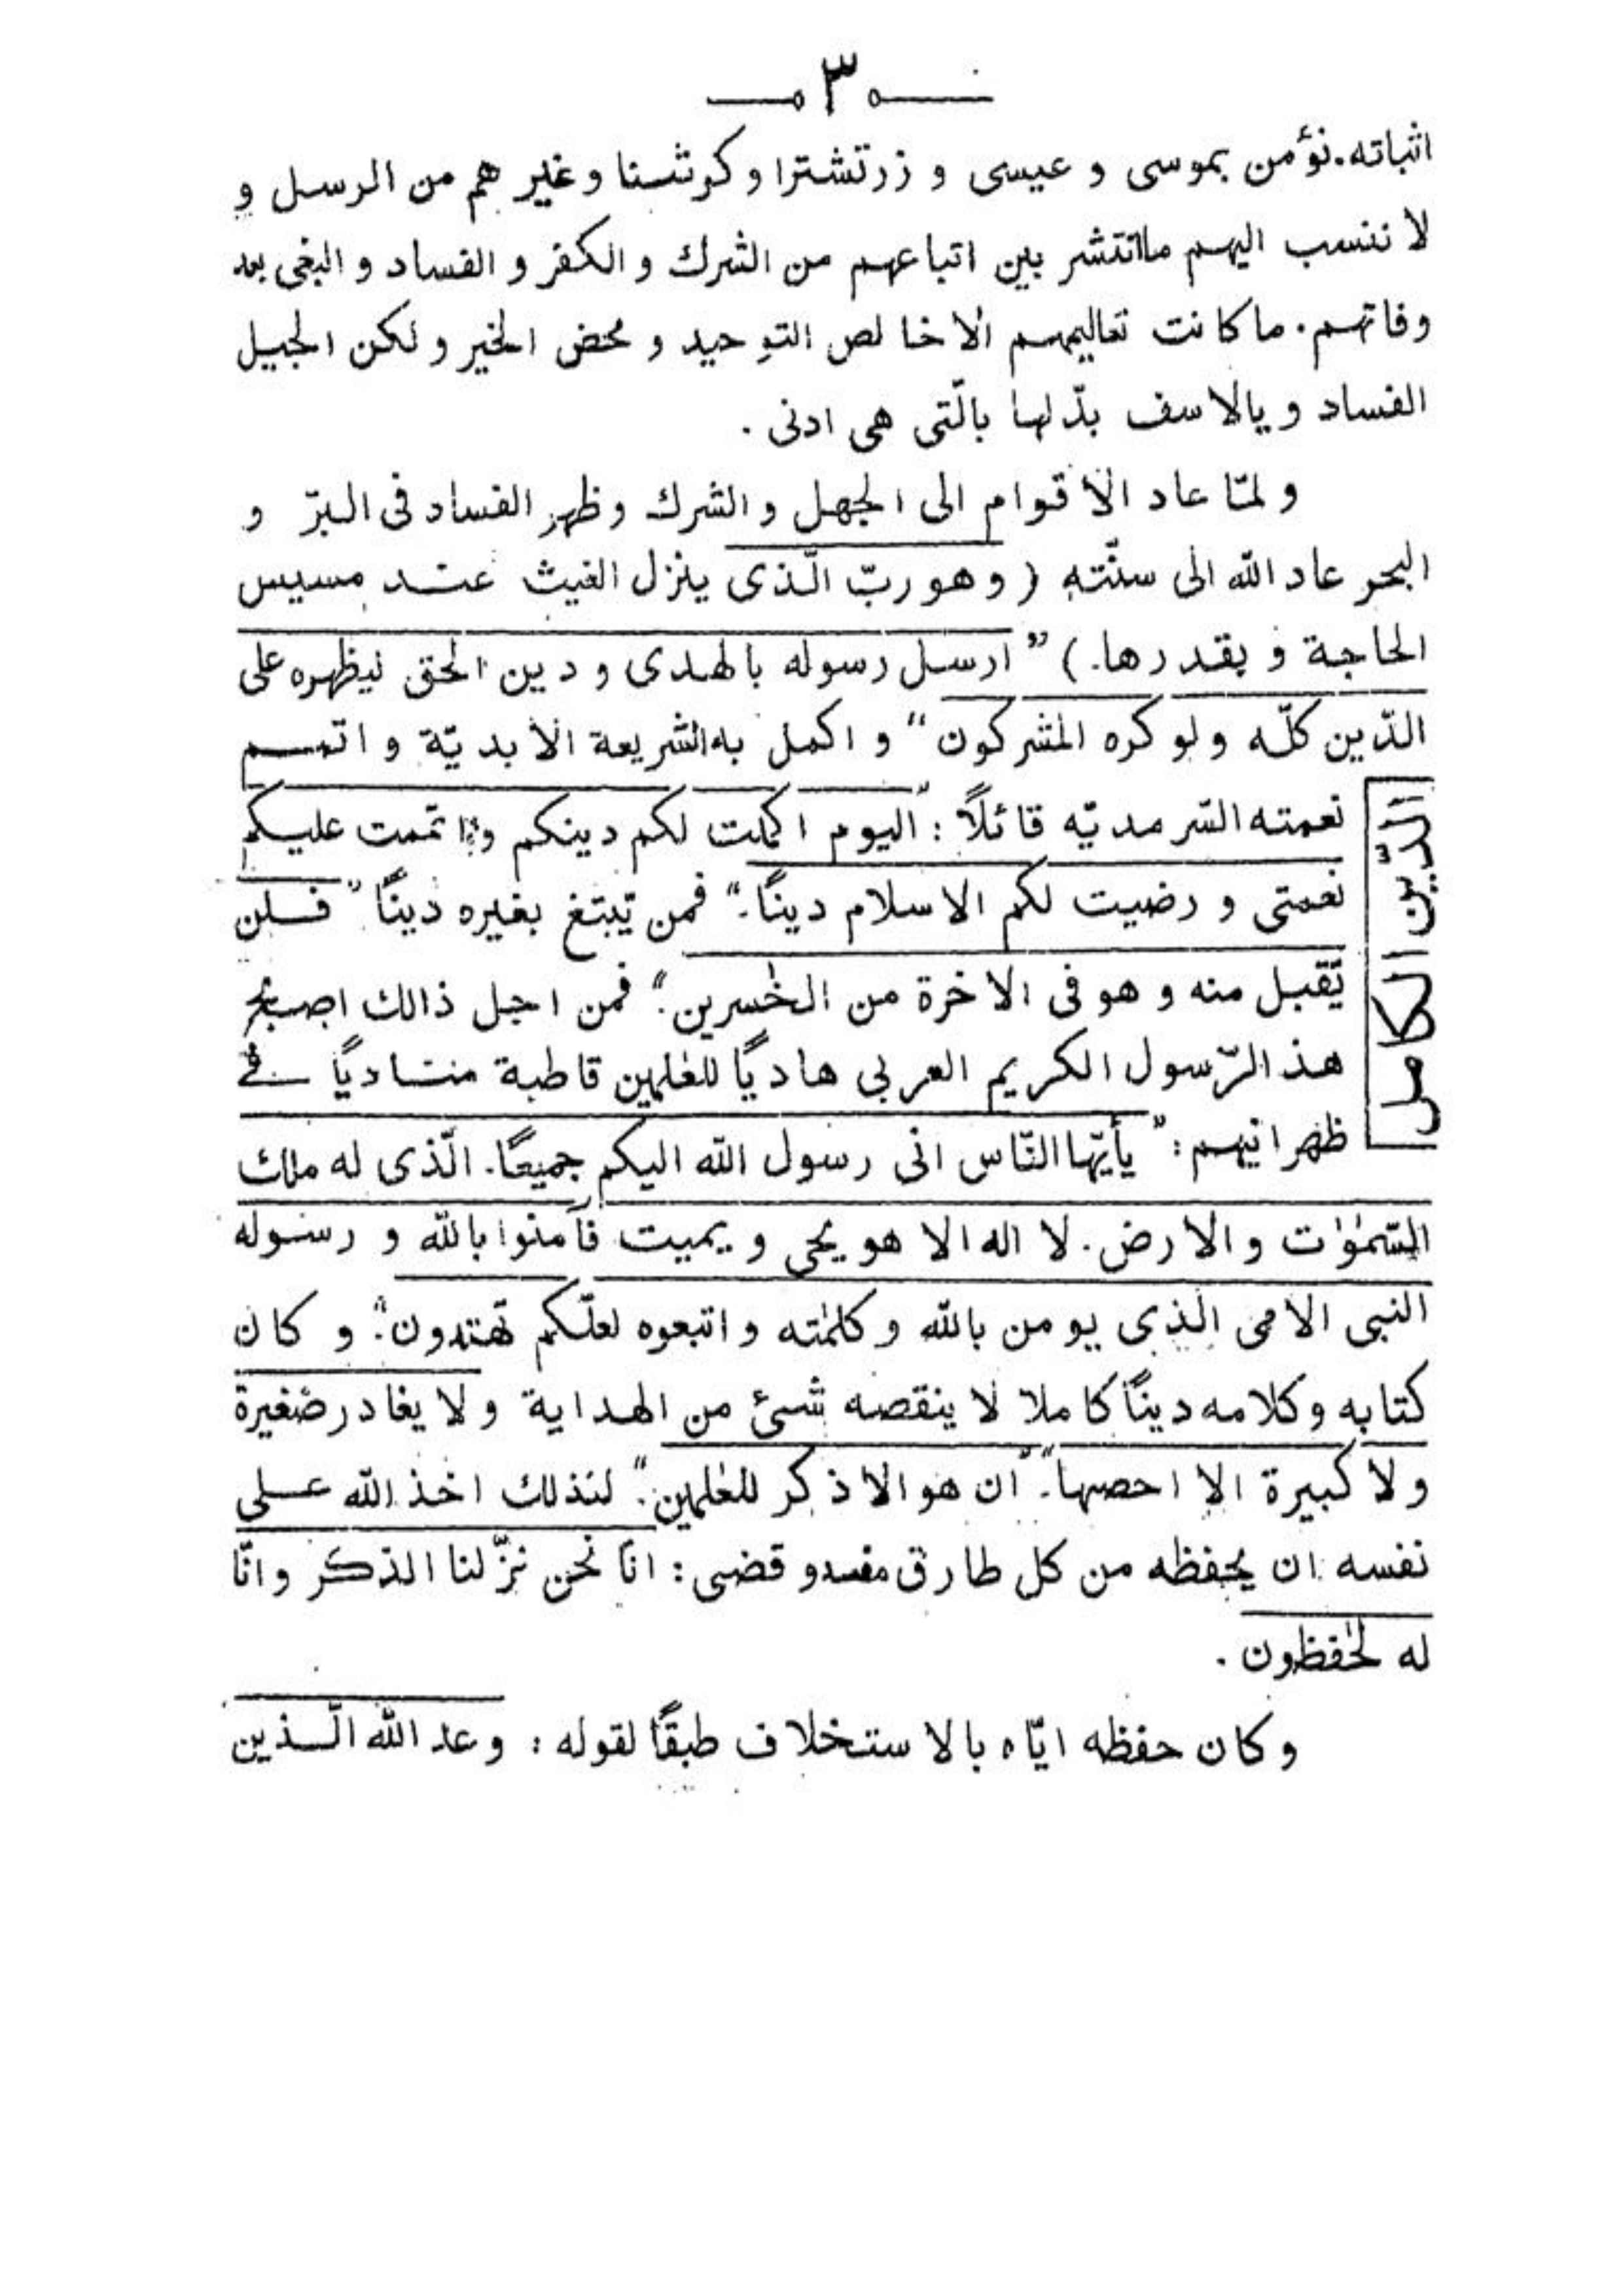 ٣
اثباته. نؤمن بموسى و عيسى و زرتشترا و كرشنا و غير هم من الرسل و
لا ننسب اليهم ما انتشر بين اتباعهم من الشرك و الكفر و الفساد و البغى بعد
وفاتهم. ما كانت تعاليمهم الا خالص التوحيد و محض الخير و لكن الجبيل
الفساد و يالاسف بدّلها بالّتى هى ادنى .
و لمّا عاد الاقوام الى الجهل و الشرك و ظهر الفساد فى البرّ و
البحر عاد الله الى سنّته ( و هو ربّ الّذى ينزل الغيث عند مسيس
الحاجة و بقدرها. ) " ارسل رسوله بالهدى و دين الحق ليظهره على
الدّين كلّه و لو كره المشركون" و اكمل به الشريعة الابديّة و اتم
نعمته السّرمديّه قائلاً : "اليوم اكملت لكم دينكم و اتممت عليكم
نعمتى و رضيت لكم الاسلام دينًا." فمن يّبتغ بغيره دينًا "فلن
يّقبل منه و هو فى الاخرة من الخٰسرين." فمن اجل ذالك اصبح
هذ الرّسول الكريم العربى هاديًا للعٰلمين قاطبة مناديًا فى
ظهرانيهم : "يأيّها النّاس انى رسول الله اليكم جميعًا. الّذى له ملك
السّمٰوٰت و الارض. لا اله الا هو يحى و يميت فآمنوا بالله و رسوله
النبى الامى الذى يومن بالله و كلمٰته و اتبعوه لعلّكم تهتدون." و كان
كتابه و كلامه دينًا كاملا لا ينقصه شىئ من الهداية و لا يغادر صغيرة
و لا كبيرة الا احصها". "ان هو الا ذكر للعٰلمين." لذلك اخذ الله على
نفسه ان يحفظه من كل طارق مفسد و قضى : انّا نحن نزّلنا الذكر و انّا
له لحٰفظون .
و كان حفظه ايّاه بالاستخلاف طبقًا لقوله : وعد الله الّذين
الدّين الكامل